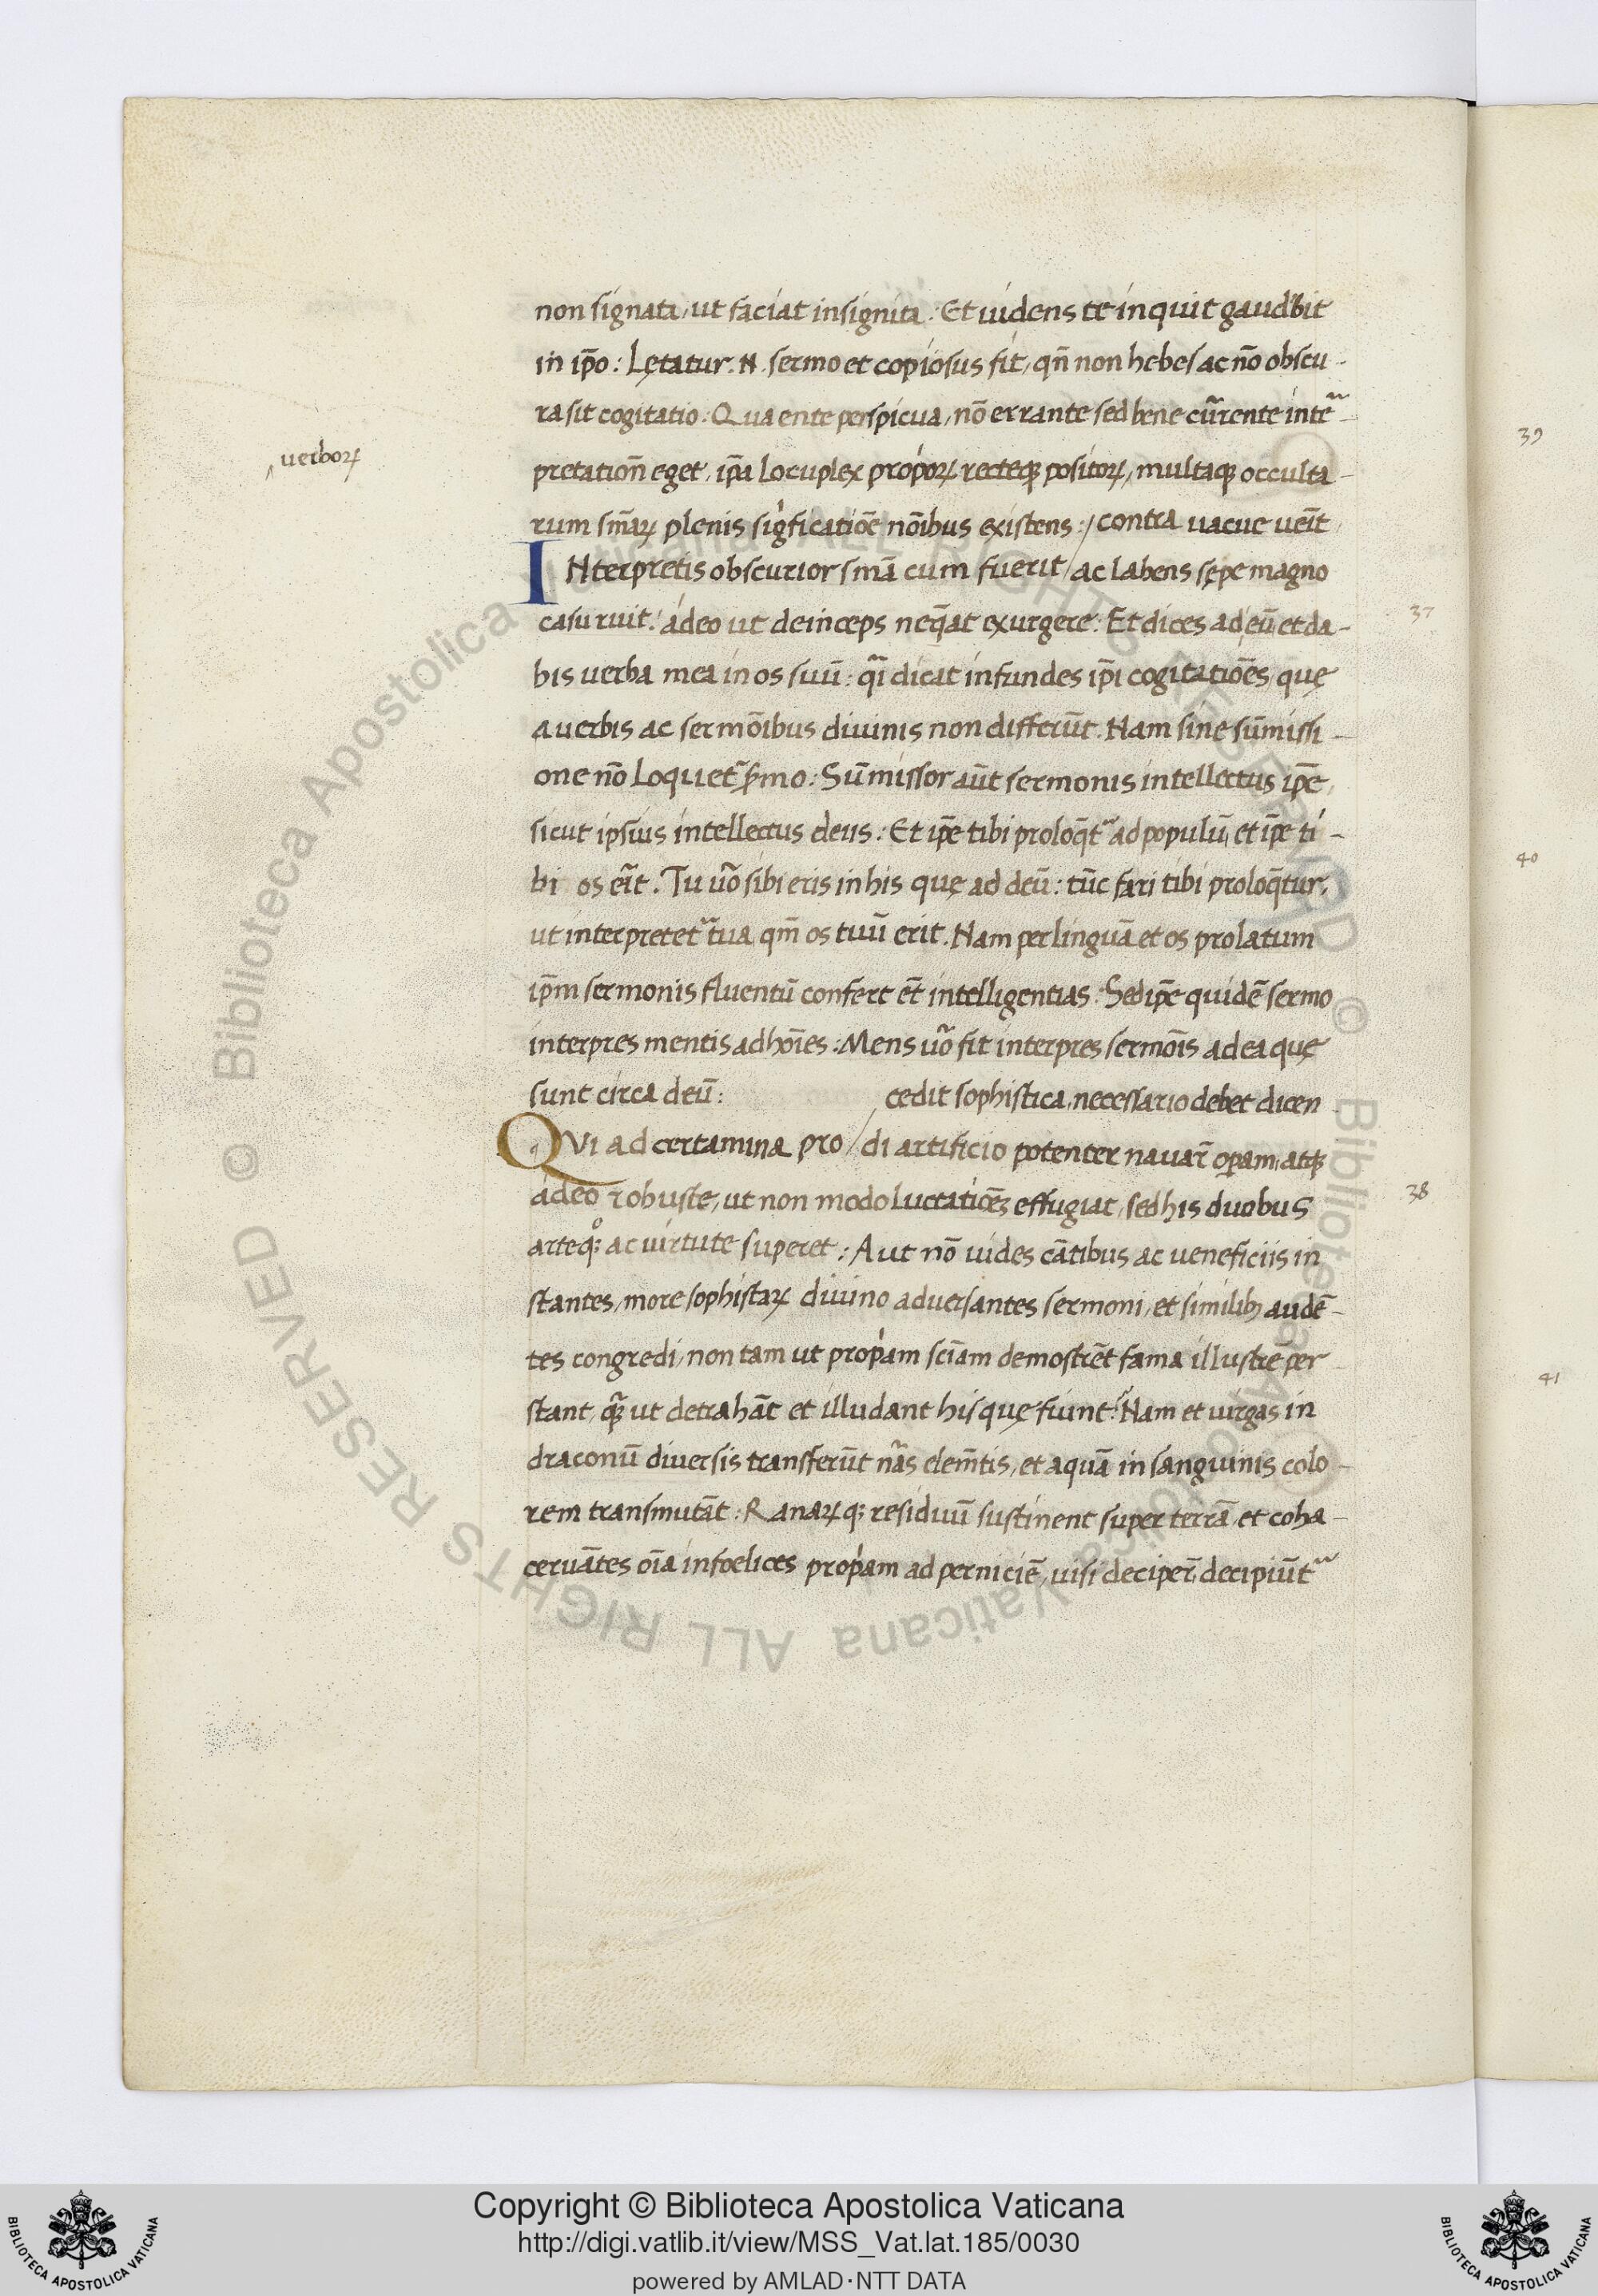 non signata, ut faciat insignita. Et uidens te inquit gaudꝫbit
in ip̄o: Lętatur .N. sermo et copiosus fit, qn̄ non hebes ac nō obscu-
ra sit cogitatio: Qua ente perspicua, nō errante sed bene currente inte-
pretation̄ eget, ip̄a locuplex proporꝝ recteqꝫ positorꝝ, multaqꝫ occulta-
uerborꝝ
rum sm̄aꝝ plenis sig̓ficatiōe nōibus existens: / contra uacue ueīt
INterpretis obscurior sm̄a cum fuerit / ac labens sępe magno
37
casu ruit: adeo ut deinceps neq̄at exurgere: Et dices ad eū et da-
bis uerba mea in os suū: q̄i dicat infundes ip̄i cogitatiōes, quę
a uerbis ac sermōibus diuinis non differūt. Nam sine sūmissi-
one nō loquet᷑ sermo: Sūmissor aūt sermonis intellectus ip̄e,
sicut ipsius intellectus deus: Et ip̄e tibi proloq̄t᷑ ad populū, et ip̄e ti-
bi os eīt. Tu uō sibi eris in his quę ad deū: tūc fari tibi proloq̄tur,
ut interpretet᷑ tua, qm̄ os tuū erit. Nam per linguā et os prolatum
ip̄m sermonis fluentū confert et̄ intelligentias: Sed ip̄e quidē sermo
interpres mentis ad hoīes: Mens uō fit interpres sermōis ad ea quę
sunt circa deū: cedit sophistica, necessario debet dicen-
QVi ad certamina pro / di artificio potenter nauar̄ operam, atqꝫ
38
adeo robuste, ut non modo luctatiōeꝫ effugiat, sed his duobus
arteqꝫ ac uirtute superet: Aut nō uides cātibus ac ueneficiis in
stantes, more sophistaꝝ diuino aduersantes sermoni, et similibꝫ audē-
tes congredi, non tam ut prop̓am sciam demostrēt fama illustrē per
stant, qꝫ ut detrahāt et illudant his quę fiunt: Nam et uirgas in
draconū diuersis transferūt nās elem̄tis, et aquā in sanguinis colo-
rem transmutāt: Ranaꝝqꝫ residuū sustinent super terrā, et coha-
ceruātes oīa infoelices prop̓am ad perniciē, uisi deciper̄, decipiūt᷑
39
40
41
© Biblioteca Apostolica Vaticana ALL RIGHTS RESERVED © Biblioteca Apostolica Vaticana ALL RIGHTS RESERVED
Copyright © Biblioteca Apostolica Vaticana
http://digi.vatlib.it/view/MSS_Vat.lat.185/0030
powered by AMLAD·NTT DATA
BIBLIOTECA APOSTOLICA VATICANA
BIBLIOTECA APOSTOLICA VATICANA